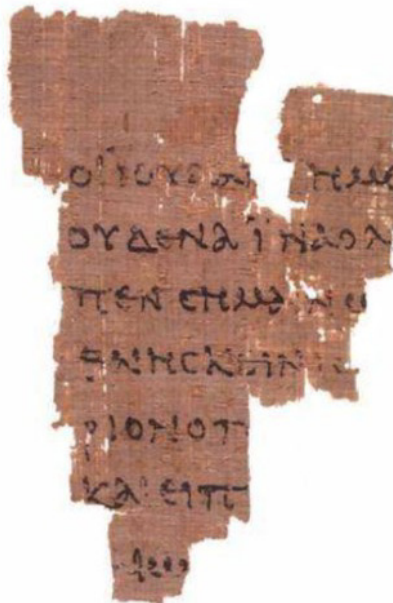 ΟΙ ΪΟΥΔΑΙ ΗΜΕ
ΟΥΔΕΝΑ ΪΝΑ Ο Λ
ΠΕΝ CΗΜΑΙΝΩ
ΘΝΗCΚΕΙΝ
ΡΙΟΝ Ο Π
ΚΑΙ ΕΙΠ